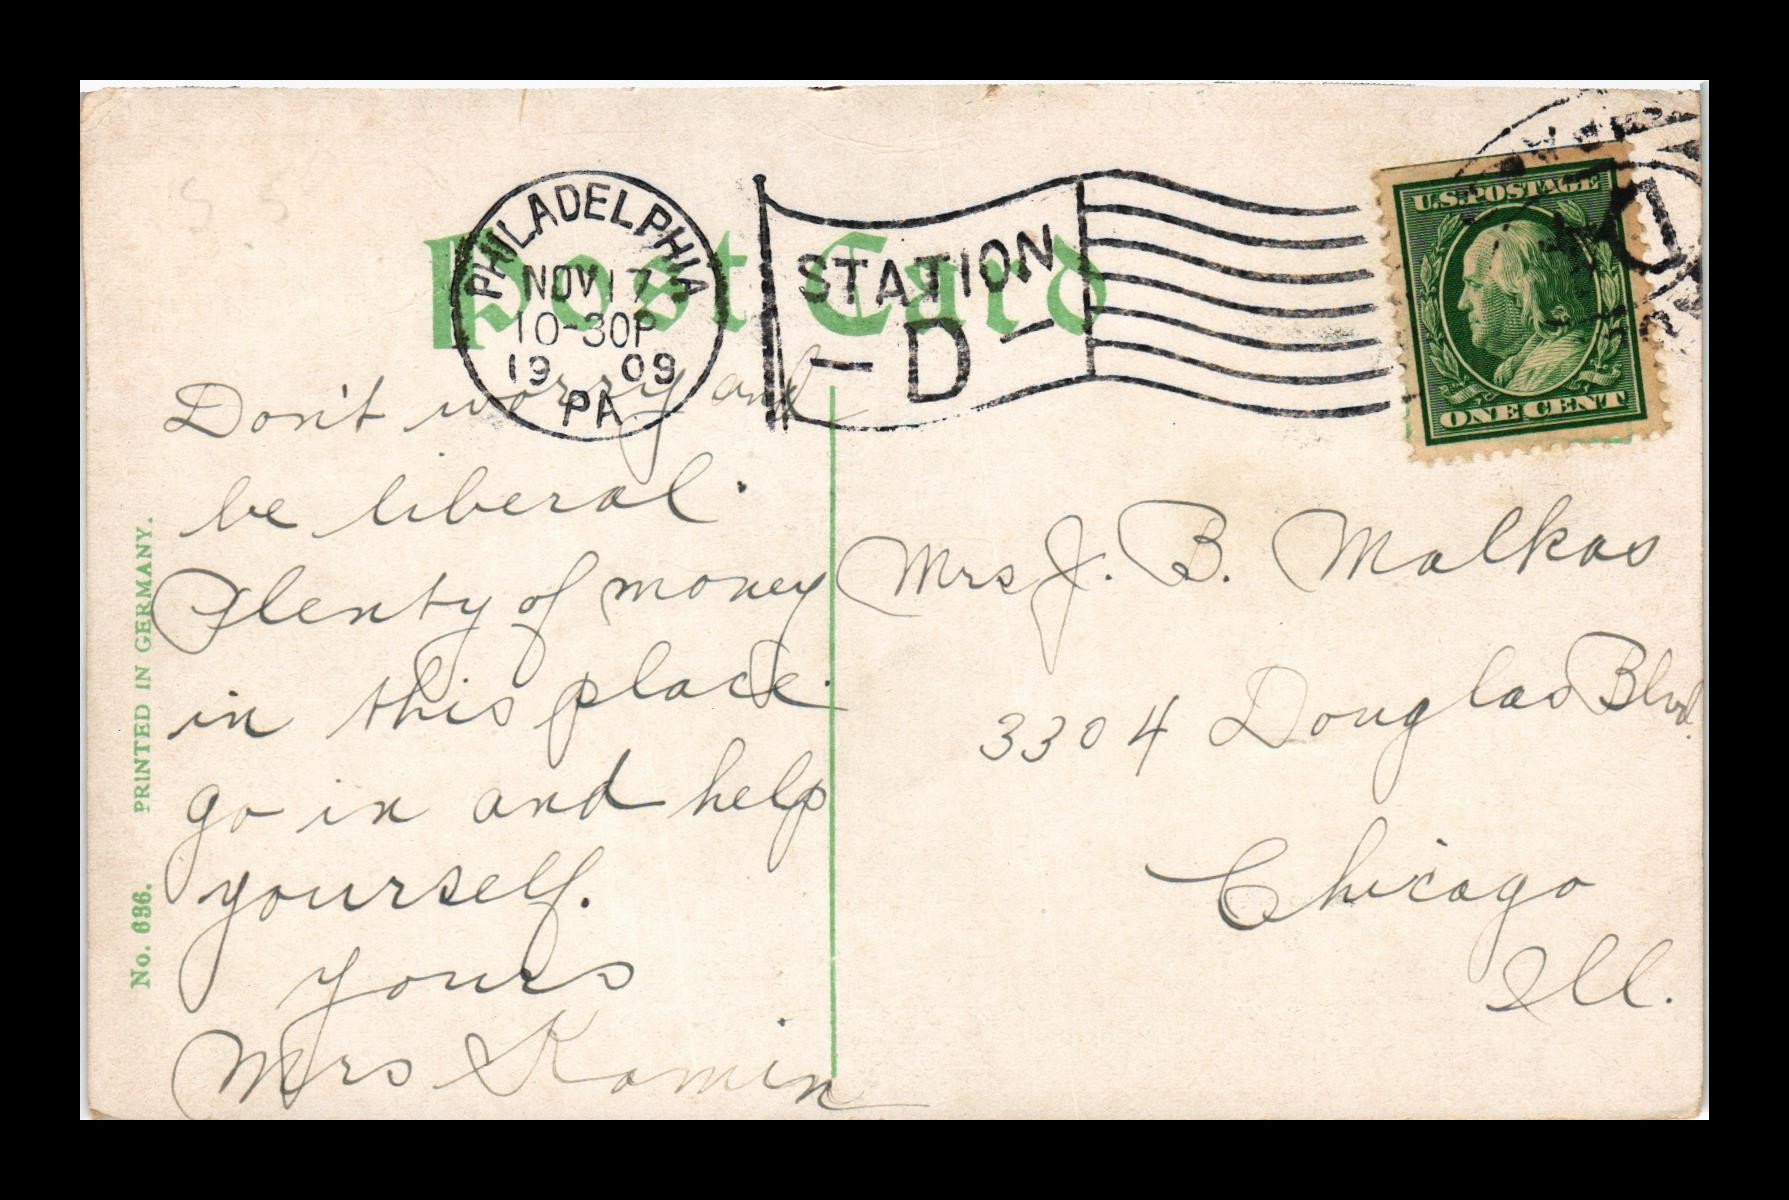 Post Card
PHILADELPHIA
NOV 17
10-30P
1909
PA
STATION
- D -
U.S. POSTAGE
ONE CENT
Don't worry and
be liberal.
Plenty of money
in this place.
go in and help
yourself.
yours
Mrs Kamin
Mrs J. B. Malkas
3304 Douglas Blvd.
Chicago
Ill.
No. 636. PRINTED IN GERMANY.